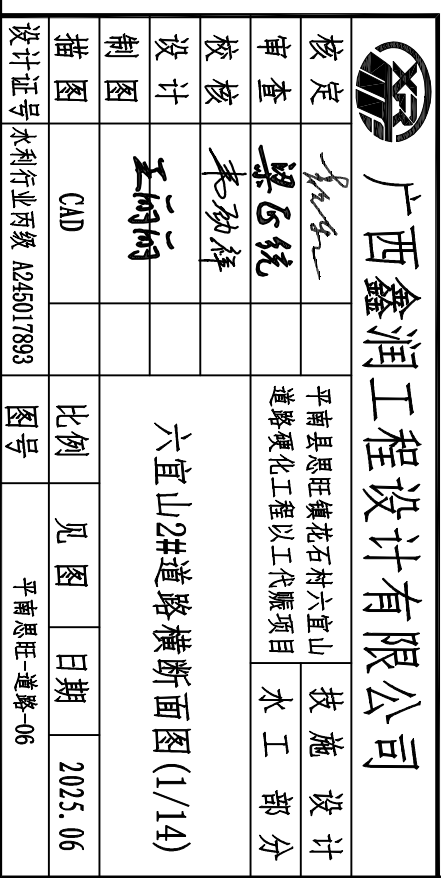 广西鑫润工程设计有限公司
核定
平南县思旺镇花石村六宜山
道路硬化工程以工代赈项目
技施 设计
审查
水工 部分
校核
六宜山2#道路横断面图(1/14)
设计
制图
描图 CAD 比例 见图 日期 2025.06
设计证号 水利行业丙级 A245017893 图号 平南思旺-道路-06